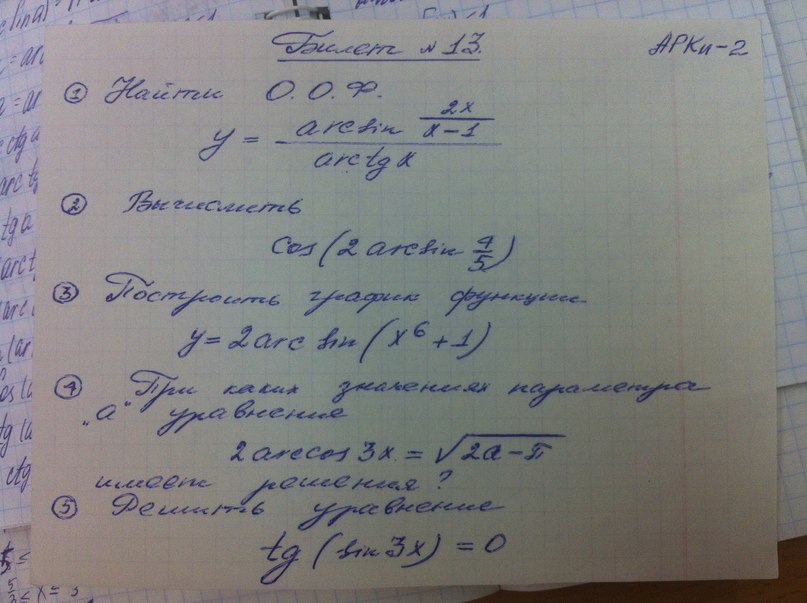 Билет № 13. АРКи-2
① Найти О.О.Ф.
y = \frac{arcsin \frac{2x}{x-1}}{arctg x}
② Вычислить
cos(2 arcsin \frac{4}{5})
③ Построить график функции
y = 2arc sin (x^6 + 1)
④ При каких значениях параметра
„а" уравнение
2 arccos 3x = \sqrt{2a - π}
имеет решения?
⑤ Решить уравнение
tg (sin 3x) = 0